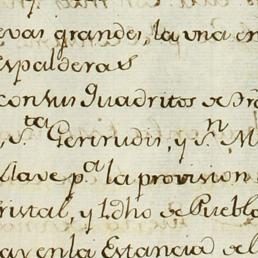 evas grandes, la una en
espalderas
con sus quadritos de
Sta Gertrudis, y Sn M
llave pa la provision
ristal, y 1 dho de Puebla
ay en la Estancia de